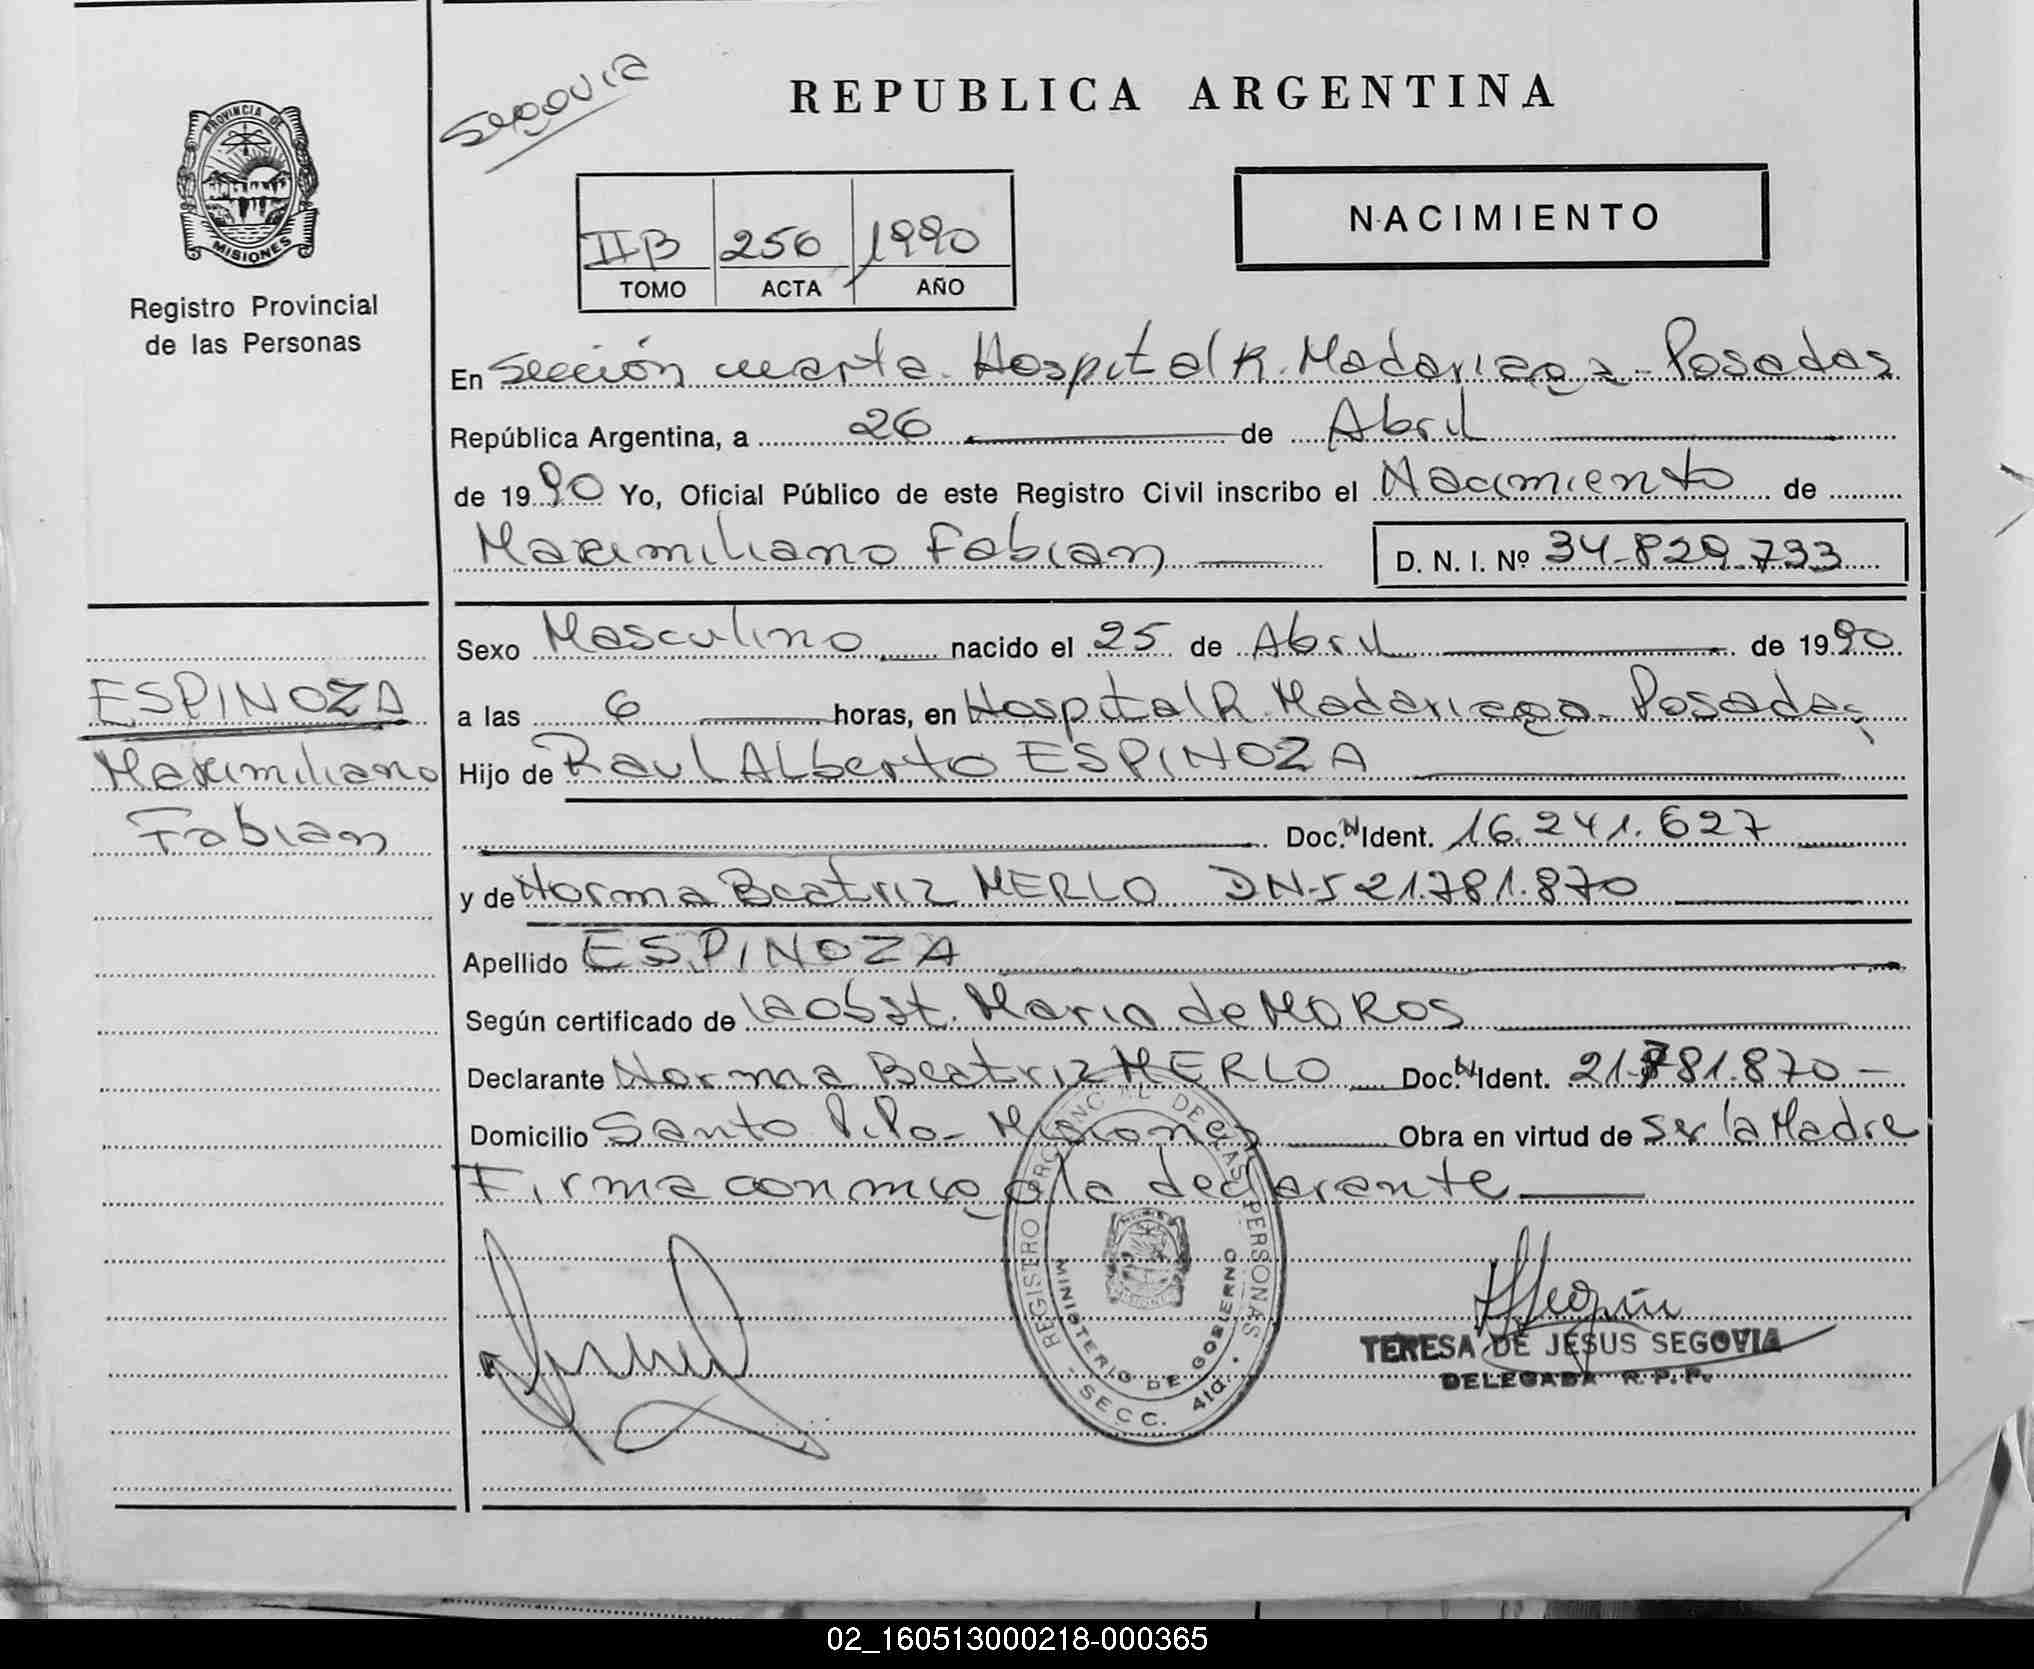 Segovia
REPUBLICA ARGENTINA
PROVINCIA DE
MISIONES
Registro Provincial
de las Personas
NACIMIENTO
IIB 256 1990
TOMO ACTA AÑO
En Sección cuarta. Hospital R. Madariaga - Posadas
República Argentina, a 26 de Abril
de 1990 Yo, Oficial Público de este Registro Civil inscribo el Nacimiento de
Maximiliano Fabian D. N. I. Nº 34.829.733
Sexo Masculino nacido el 25 de Abril de 1990
ESPINOZA
Maximiliano
Fabian
a las 6 horas, en Hospital R. Madariaga - Posadas
Hijo de Raul Alberto ESPINOZA
Doc. N Ident. 16.241.627
y de Norma Beatriz MERLO DNI 21.781.870
Apellido ESPINOZA
Según certificado de la Obst. Maria de MOROS
Declarante Norma Beatriz MERLO Doc. N Ident. 21.781.870 -
Domicilio Santo Pipo - Misiones Obra en virtud de ser la Madre
Firma conmigo la declarante
REGISTRO PROVINCIAL DE LAS PERSONAS
MINISTERIO DE GOBIERNO
- SECC. 4ta. -
TERESA DE JESUS SEGOVIA
DELEGADA R. P. P.
02_160513000218-000365